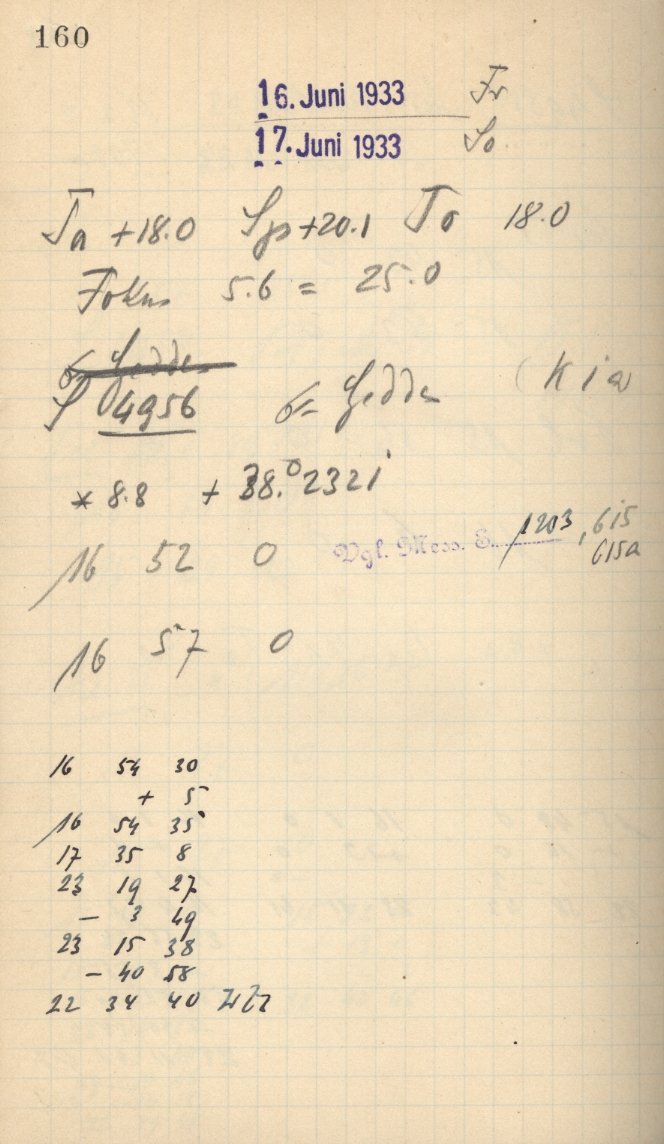 160
16. Juni 1933 Fr
17. Juni 1933 So.
Ta +18.0 Sp +20.1 To 18.0
Fokus 5.6 = 25.0
4956 (Kia
* 8.8 + 38.°2321
16 52 0 Vgl. Mess. S. 1203, 615
615a
16 57 0
16 54 30
+ 5
16 54 35
17 35 8
23 19 27
- 3 49
23 15 38
- 40 58
22 34 40